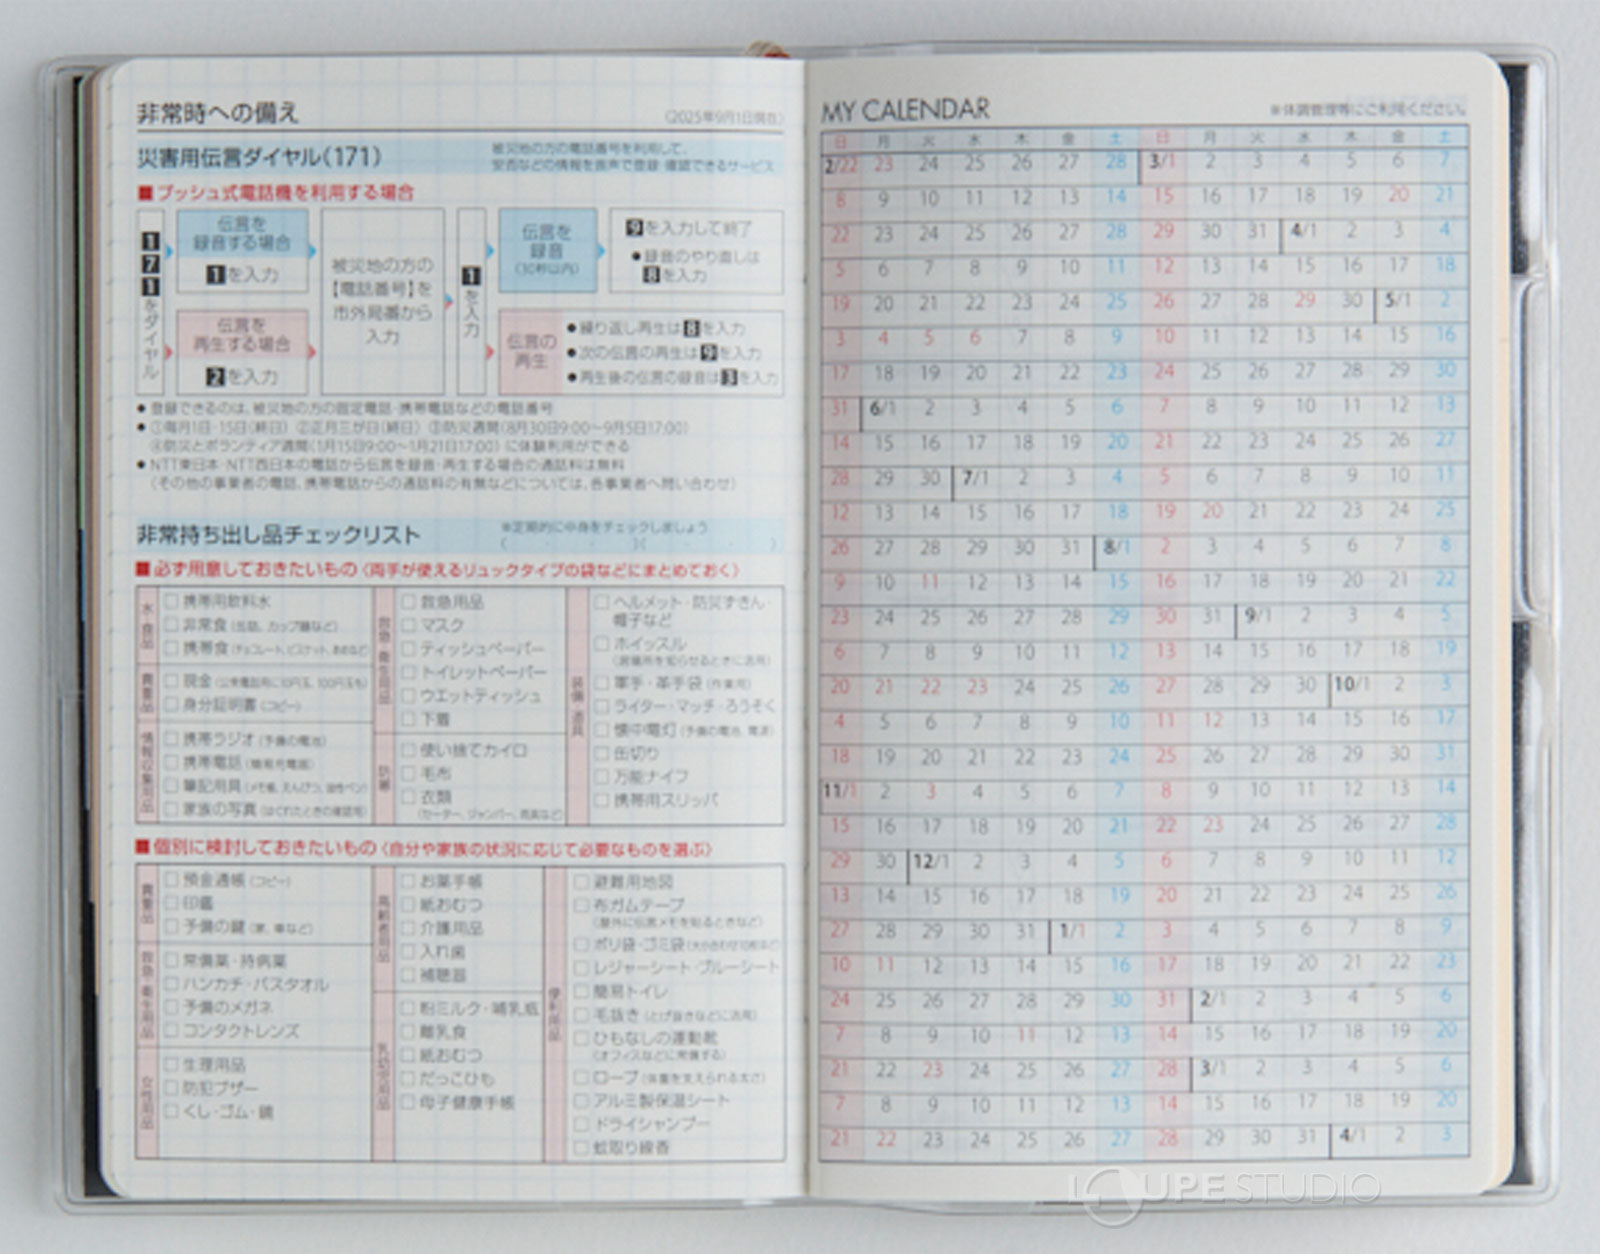 非常時への備え
(2025年9月1日現在)
災害用伝言ダイヤル(171)
被災地の方の電話番号を利用して、
安否などの情報を音声で登録・確認できるサービス
■プッシュ式電話機を利用する場合
171をダイヤル
伝言を
録音する場合
1を入力
伝言を
再生する場合
2を入力
被災地の方の
【電話番号】を
市外局番から
入力
1を入力
伝言を
録音
(30秒以内)
9を入力して終了
●録音のやり直しは
8を入力
伝言の
再生
●繰り返し再生は8を入力
●次の伝言の再生は9を入力
●再生後の伝言の録音は3を入力
●登録できるのは、被災地の方の固定電話・携帯電話などの電話番号
●①毎月1日・15日(終日) ②正月三が日(終日) ③防災週間(8月30日9:00〜9月5日17:00)
④防災とボランティア週間(1月15日9:00〜1月21日17:00) に体験利用ができる
●NTT東日本・NTT西日本の電話から伝言を録音・再生する場合の通話料は無料
(その他の事業者の電話、携帯電話からの通話料の有無などについては、各事業者へ問い合わせ)
非常持ち出し品チェックリスト
※定期的に中身をチェックしましょう
( ・ ・ )( ・ ・ )
■必ず用意しておきたいもの〈両手が使えるリュックタイプの袋などにまとめておく〉
水・食品
□携帯用飲料水
□非常食(缶詰、カップ麺など)
□携帯食(チョコレート、ビスケット、あめなど)
貴重品
□現金(公衆電話用に10円玉、100円玉も)
□身分証明書(コピー)
情報収集用品
□携帯ラジオ(予備の電池)
□携帯電話(簡易充電器)
□筆記用具(メモ帳、えんぴつ、油性ペン)
□家族の写真(はぐれたときの確認用)
救急・衛生用品
□救急用品
□マスク
□ティッシュペーパー
□トイレットペーパー
□ウエットティッシュ
□下着
防寒
□使い捨てカイロ
□毛布
□衣類
(セーター、ジャンパー、雨具など)
装備・道具
□ヘルメット・防災ずきん・
帽子など
□ホイッスル
(居場所を知らせるときに活用)
□軍手・革手袋(作業用)
□ライター・マッチ・ろうそく
□懐中電灯(予備の電池、電球)
□缶切り
□万能ナイフ
□携帯用スリッパ
■個別に検討しておきたいもの〈自分や家族の状況に応じて必要なものを選ぶ〉
貴重品
□預金通帳(コピー)
□印鑑
□予備の鍵(家、車など)
救急・衛生用品
□常備薬・持病薬
□ハンカチ・バスタオル
□予備のメガネ
□コンタクトレンズ
女性用品
□生理用品
□防犯ブザー
□くし・ゴム・鏡
高齢者用品
□お薬手帳
□紙おむつ
□介護用品
□入れ歯
□補聴器
乳幼児用品
□粉ミルク・哺乳瓶
□離乳食
□紙おむつ
□だっこひも
□母子健康手帳
便利用品
□避難用地図
□布ガムテープ
(屋外に伝言メモを貼るときなど)
□ポリ袋・ゴミ袋(大小合わせ10枚ほど)
□レジャーシート・ブルーシート
□簡易トイレ
□毛抜き(とげ抜きなどに活用)
□ひもなしの運動靴
(オフィスなどに常備する)
□ロープ(体重を支えられる太さ)
□アルミ製保温シート
□ドライシャンプー
□蚊取り線香
MY CALENDAR
※体調管理等にご利用ください。
日 月 火 水 木 金 土 日 月 火 水 木 金 土
2/22 23 24 25 26 27 28 3/1 2 3 4 5 6 7
8 9 10 11 12 13 14 15 16 17 18 19 20 21
22 23 24 25 26 27 28 29 30 31 4/1 2 3 4
5 6 7 8 9 10 11 12 13 14 15 16 17 18
19 20 21 22 23 24 25 26 27 28 29 30 5/1 2
3 4 5 6 7 8 9 10 11 12 13 14 15 16
17 18 19 20 21 22 23 24 25 26 27 28 29 30
31 6/1 2 3 4 5 6 7 8 9 10 11 12 13
14 15 16 17 18 19 20 21 22 23 24 25 26 27
28 29 30 7/1 2 3 4 5 6 7 8 9 10 11
12 13 14 15 16 17 18 19 20 21 22 23 24 25
26 27 28 29 30 31 8/1 2 3 4 5 6 7 8
9 10 11 12 13 14 15 16 17 18 19 20 21 22
23 24 25 26 27 28 29 30 31 9/1 2 3 4 5
6 7 8 9 10 11 12 13 14 15 16 17 18 19
20 21 22 23 24 25 26 27 28 29 30 10/1 2 3
4 5 6 7 8 9 10 11 12 13 14 15 16 17
18 19 20 21 22 23 24 25 26 27 28 29 30 31
11/1 2 3 4 5 6 7 8 9 10 11 12 13 14
15 16 17 18 19 20 21 22 23 24 25 26 27 28
29 30 12/1 2 3 4 5 6 7 8 9 10 11 12
13 14 15 16 17 18 19 20 21 22 23 24 25 26
27 28 29 30 31 1/1 2 3 4 5 6 7 8 9
10 11 12 13 14 15 16 17 18 19 20 21 22 23
24 25 26 27 28 29 30 31 2/1 2 3 4 5 6
7 8 9 10 11 12 13 14 15 16 17 18 19 20
21 22 23 24 25 26 27 28 3/1 2 3 4 5 6
7 8 9 10 11 12 13 14 15 16 17 18 19 20
21 22 23 24 25 26 27 28 29 30 31 4/1 2 3
LOUPE STUDIO